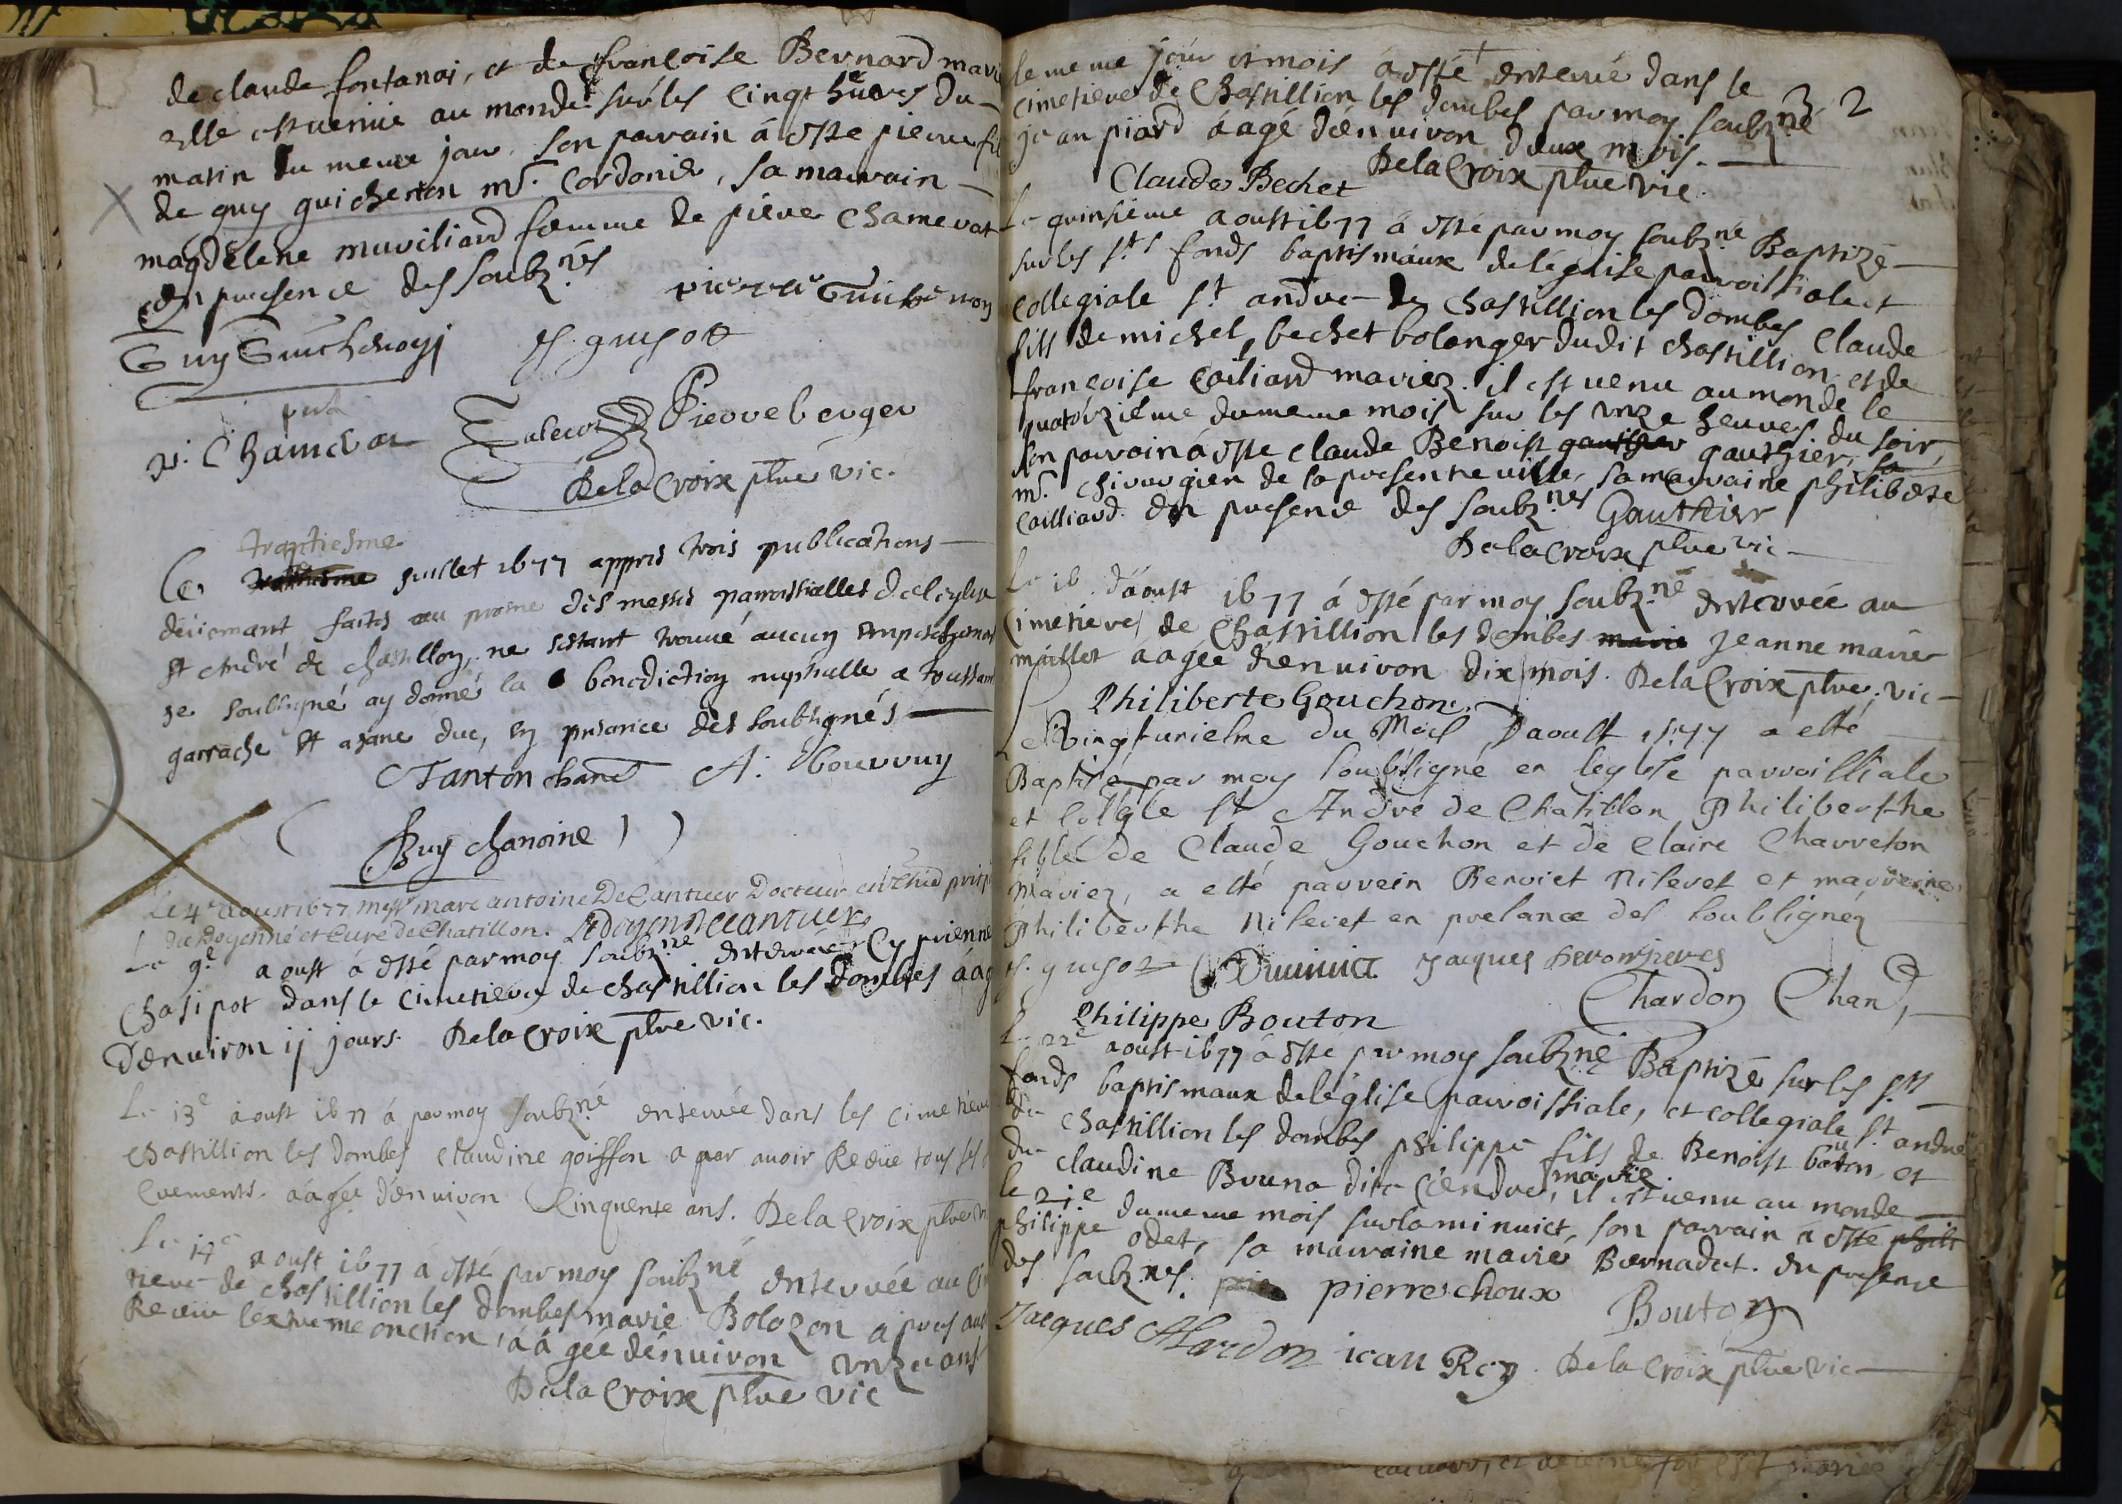 de claude fontanai, et de françoise Bernard mari
elle est venüe au monde sur les cinqt heures du
matin du meme jour. son parrain á esté pierre fi
de guy guichenon mr. Cordonié, sa marrain
magdelene muviliard femme de piere Chamevat
en presence des soubz.nés
pierre Guichenon
Guy Guichenon J. guyot
p. Chameva Pierre berger
De la Croix ptre vic.
trantiesme
Ce juillet 1677 appres trois publications
deüemant faites au prosne des messes parroissialles de leglise
st André de Chastillon, ne sestant trouué aucun empeschemen
je soubsigné ay donné la benediction nuptialle a toussam
garrache et a jane duc, en presance des soubsignés
Tanton chane A: bouvvuy
Buy chanoine
Le 4e aoust 1677 messr marc antoine DeCantuer Docteur en
du Doyenné et Cure de Chatillon. DeCantuer
Le 9e aoust á esté par moy soubz.né enterrée Cyprienne
Chasipot dans le cimetiere de chastillion les dombes áag
denuiron ij jours. De la Croix ptre vic.
Le 13e aoust 1677 á par moy soubz.né enterrée dans les cimetiere
chastillion les dombes claudine goiffon a par auoir Recüe tous ses
crements. áagée denuiron Cinquente ans. De la Croix ptre v
Le 14e aoust 1677 á esté par moy soubz.né enterrée au ci
tiere de chastillion les dombes marie Bolozon apres au
Receüe lextreme onction, áagée denuiron vnze ans
De la Croix ptre vic
le meme jour et mois á esté enterré dans le
32
cimetiere de Chastillion les dombes par moy soubz.né
jean piard áagé denuiron deux mois.
De la Croix ptre vic.
Claude Bechet
Le quinsieme aoust 1677 á esté par moy soubz.né Baptizé
sur les sts fonds baptismaux de léglise parroissiale et
collegiale st andre de Chastillion les dombes Claude
fils de michel bechet bolanger dudit chastillion et de
françoise Cailiard mariez. il est venu au monde le
quatorzieme du meme mois sur les vnze heures du soir,
son parrain á esté claude Benoist gauthier gauthier, sa
mr. chirurgien de la presente ville, sa marraine philiberte
Cailliard. en presence des soubz.nés Gauthier
De la Croix ptre vic
Le 16 d'aoust 1677 á esté par moy soubz.né enterrée au
cimetiere de Chastillion les dombes marie jeanne marie
millet aagée denuiron dix mois. De la Croix ptre, vic
Philiberte Gouchon.
Le Vingtuniesme du Mois Daoust 1677 a esté
Baptisé par moy soubsigné en leglise parroissiale
et collgle st André de Chatillon Philiberthe
fille de Claude Gouchon et de Claire Charreton
Mariez, a esté parrein Benoict Nilevet et marreine
Philiberthe Nilevet en presance des soubsignéz
J. guyot Jacques
Chardon Chane,
Philippe Bouton
Le 22e aoust 1677 á esté par moy soubz.né Baptizé sur les sts
fonds baptismaux de léglise parroissiale, et collegiale st andre
de chastillion les dombes philippe fils de Benoist bouton et
de claudine Bruna dite Cendre, marié il est venu au monde
le 21e du meme mois sur la minuict, son parrain á esté phili
philippe odet, sa marraine marie Bernadet. en presence
des soubz.nés. pierre choux Bouton
Jacques Alardon jean Rey. De la Croix ptre vic